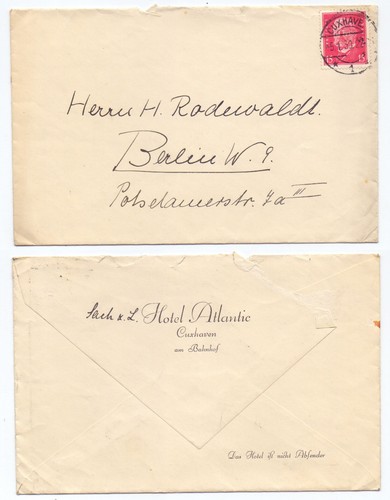 CUXHAVEN
1
15 15
Herrn H. Rodewaldt.
Berlin W. 9.
Potsdamerstr. 7a III
Hotel Atlantic
Cuxhaven
am Bahnhof
Das Hotel ist nicht Absender